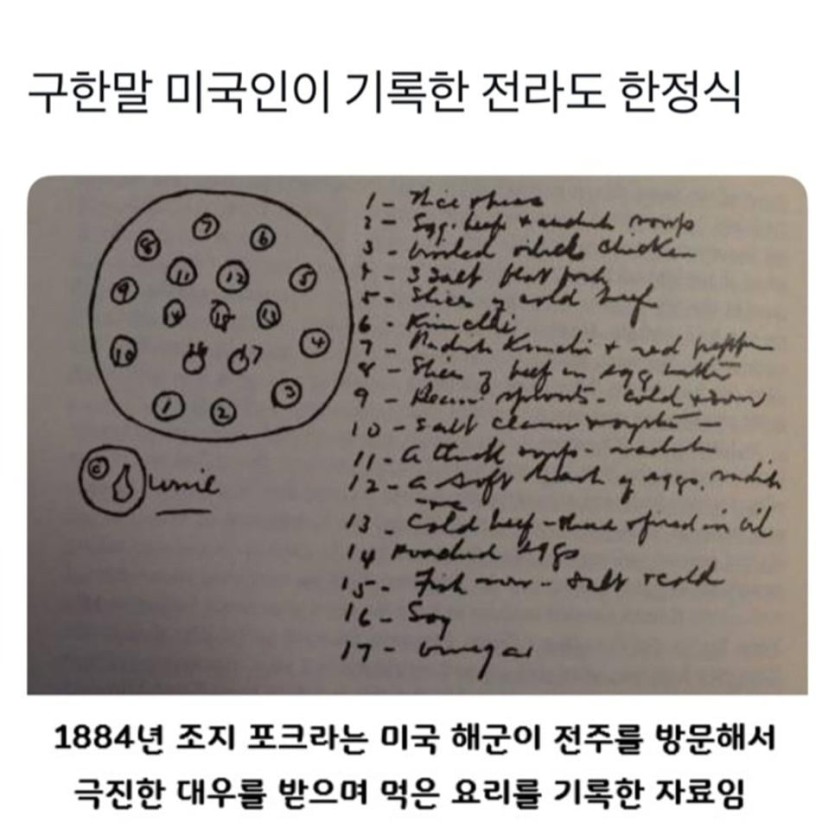 구한말 미국인이 기록한 전라도 한정식
1 - Rice
2 - Egg. beef + radish soup
3 - broiled chicken
4 - 3 salt pork
5 - Slices of cold beef
6 - Kimchi
7 - Radish Kimchi + red pepper
8 - Slices of beef in egg batter
9 - Bean sprouts - cold + sour
10 - Salt clams + oysters -
11 - a thick soup - radish
12 - a soft hash of eggs, radish
13 - Cold beef - fried in oil
14 Poached eggs
15 - Fish - salt + cold
16 - Soy
17 - Vinegar
7
8 6
11 12
9 5
14 15 13
10 16 17 4
1 2 3
wine
1884년 조지 포크라는 미국 해군이 전주를 방문해서
극진한 대우를 받으며 먹은 요리를 기록한 자료임